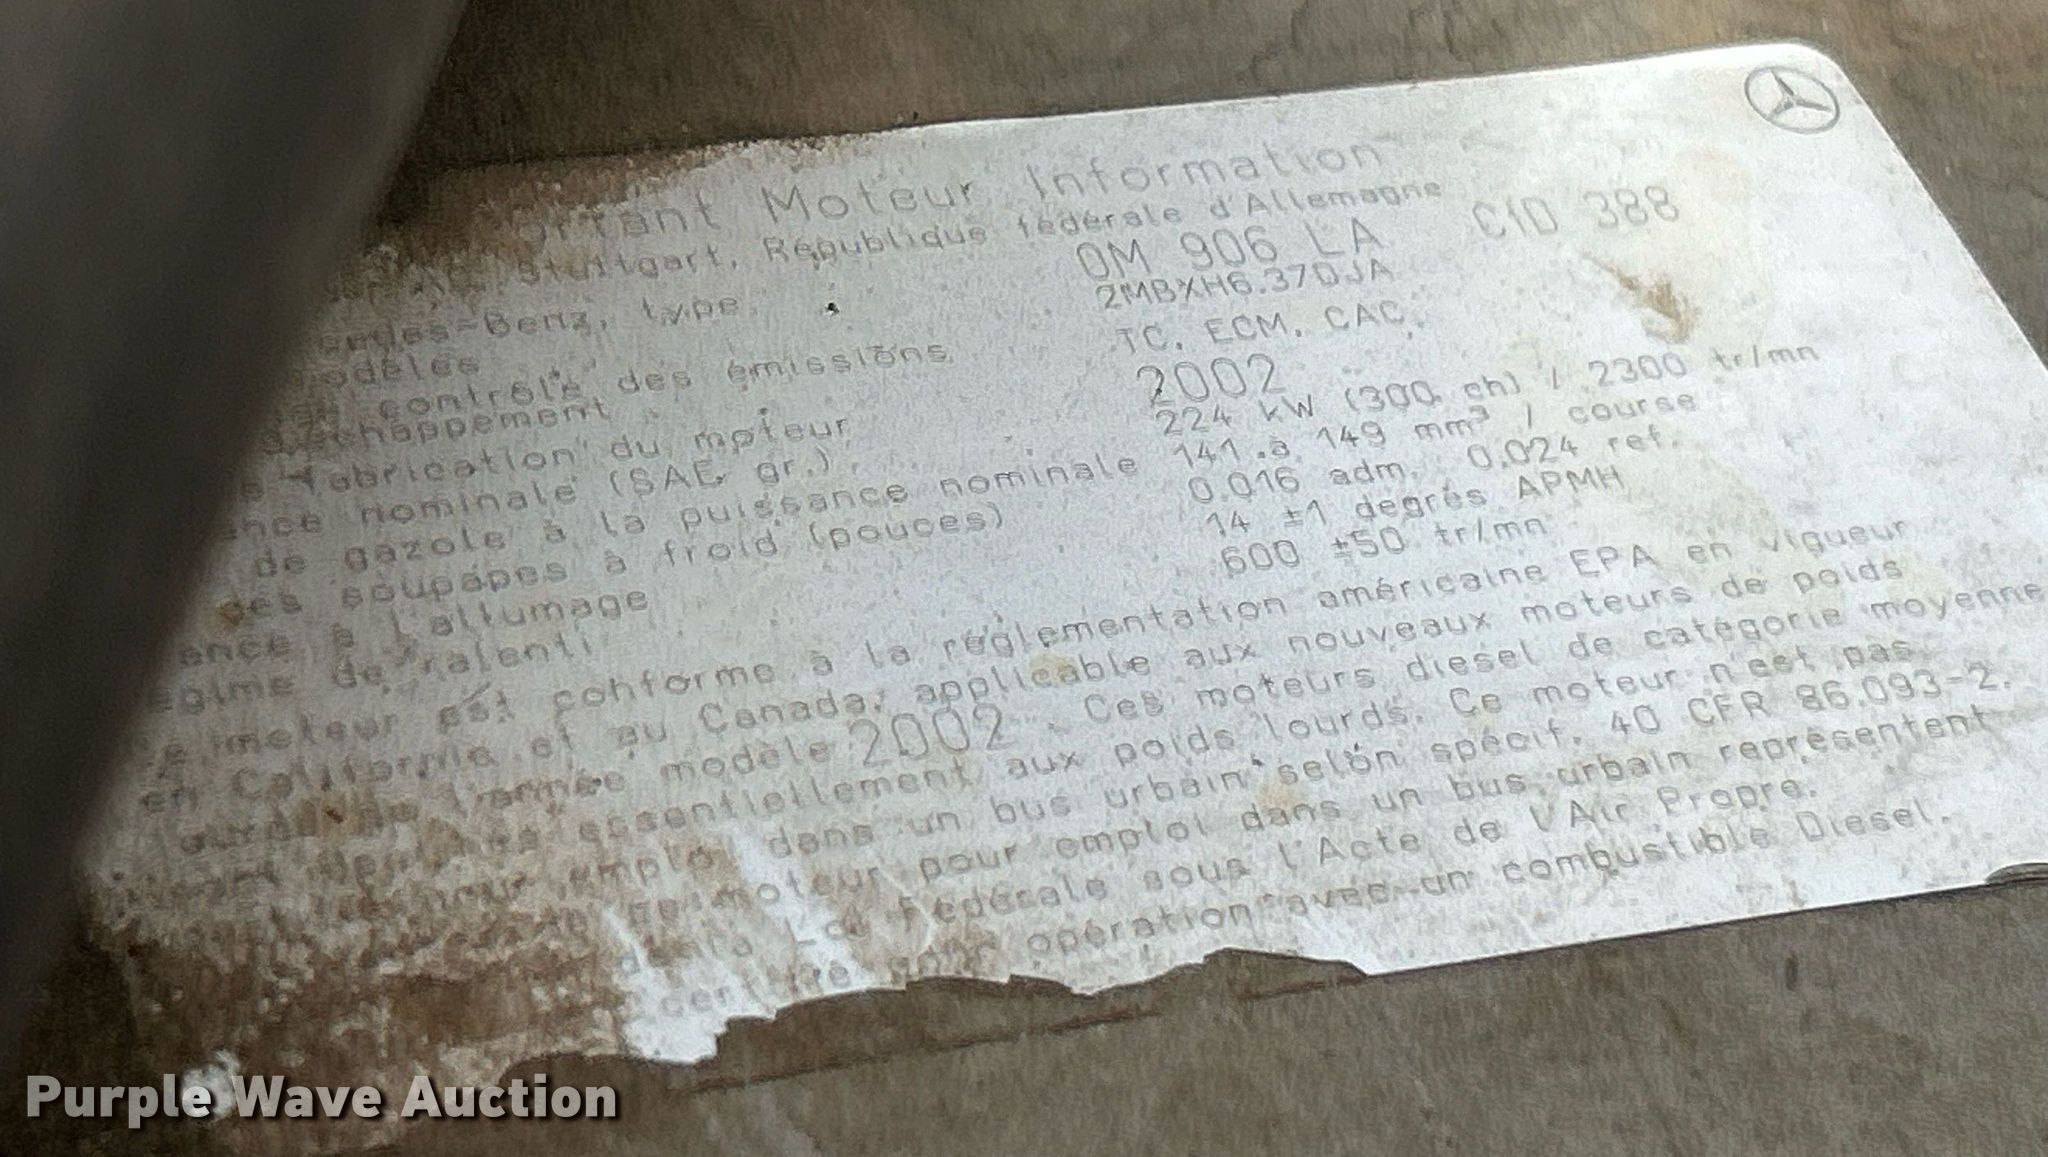 Moteur Information
Stuttgart, République fédérale d'Allemagne
-Benz, type OM 906 LA CID 388
2MBXH6.37DJA
contrôle des émissions TC, ECM, CAC
d'échappement
fabrication du moteur 2002
nominale (SAE gr.) 224 kW (300 ch) / 2300 tr/mn
de gazole à la puissance nominale 141 à 149 mm³ / course
des soupapes à froid (pouces) 0.016 adm. 0.024 ref.
à l'allumage 14 ±1 degrés APMH
de ralenti 600 ±50 tr/mn
moteur est conforme à la réglementation américaine EPA en vigueur
en Californie et au Canada, applicable aux nouveaux moteurs de poids
l'année modèle 2002. Ces moteurs diesel de catégorie moyenne
essentiellement aux poids lourds. Ce moteur n'est pas
emploi dans un bus urbain selon spécif. 40 CFR 86.093-2.
moteur pour emploi dans un bus urbain représentent
Fédérale sous l'Acte de l'Air Propre.
opération avec un combustible Diesel.
Purple Wave Auction